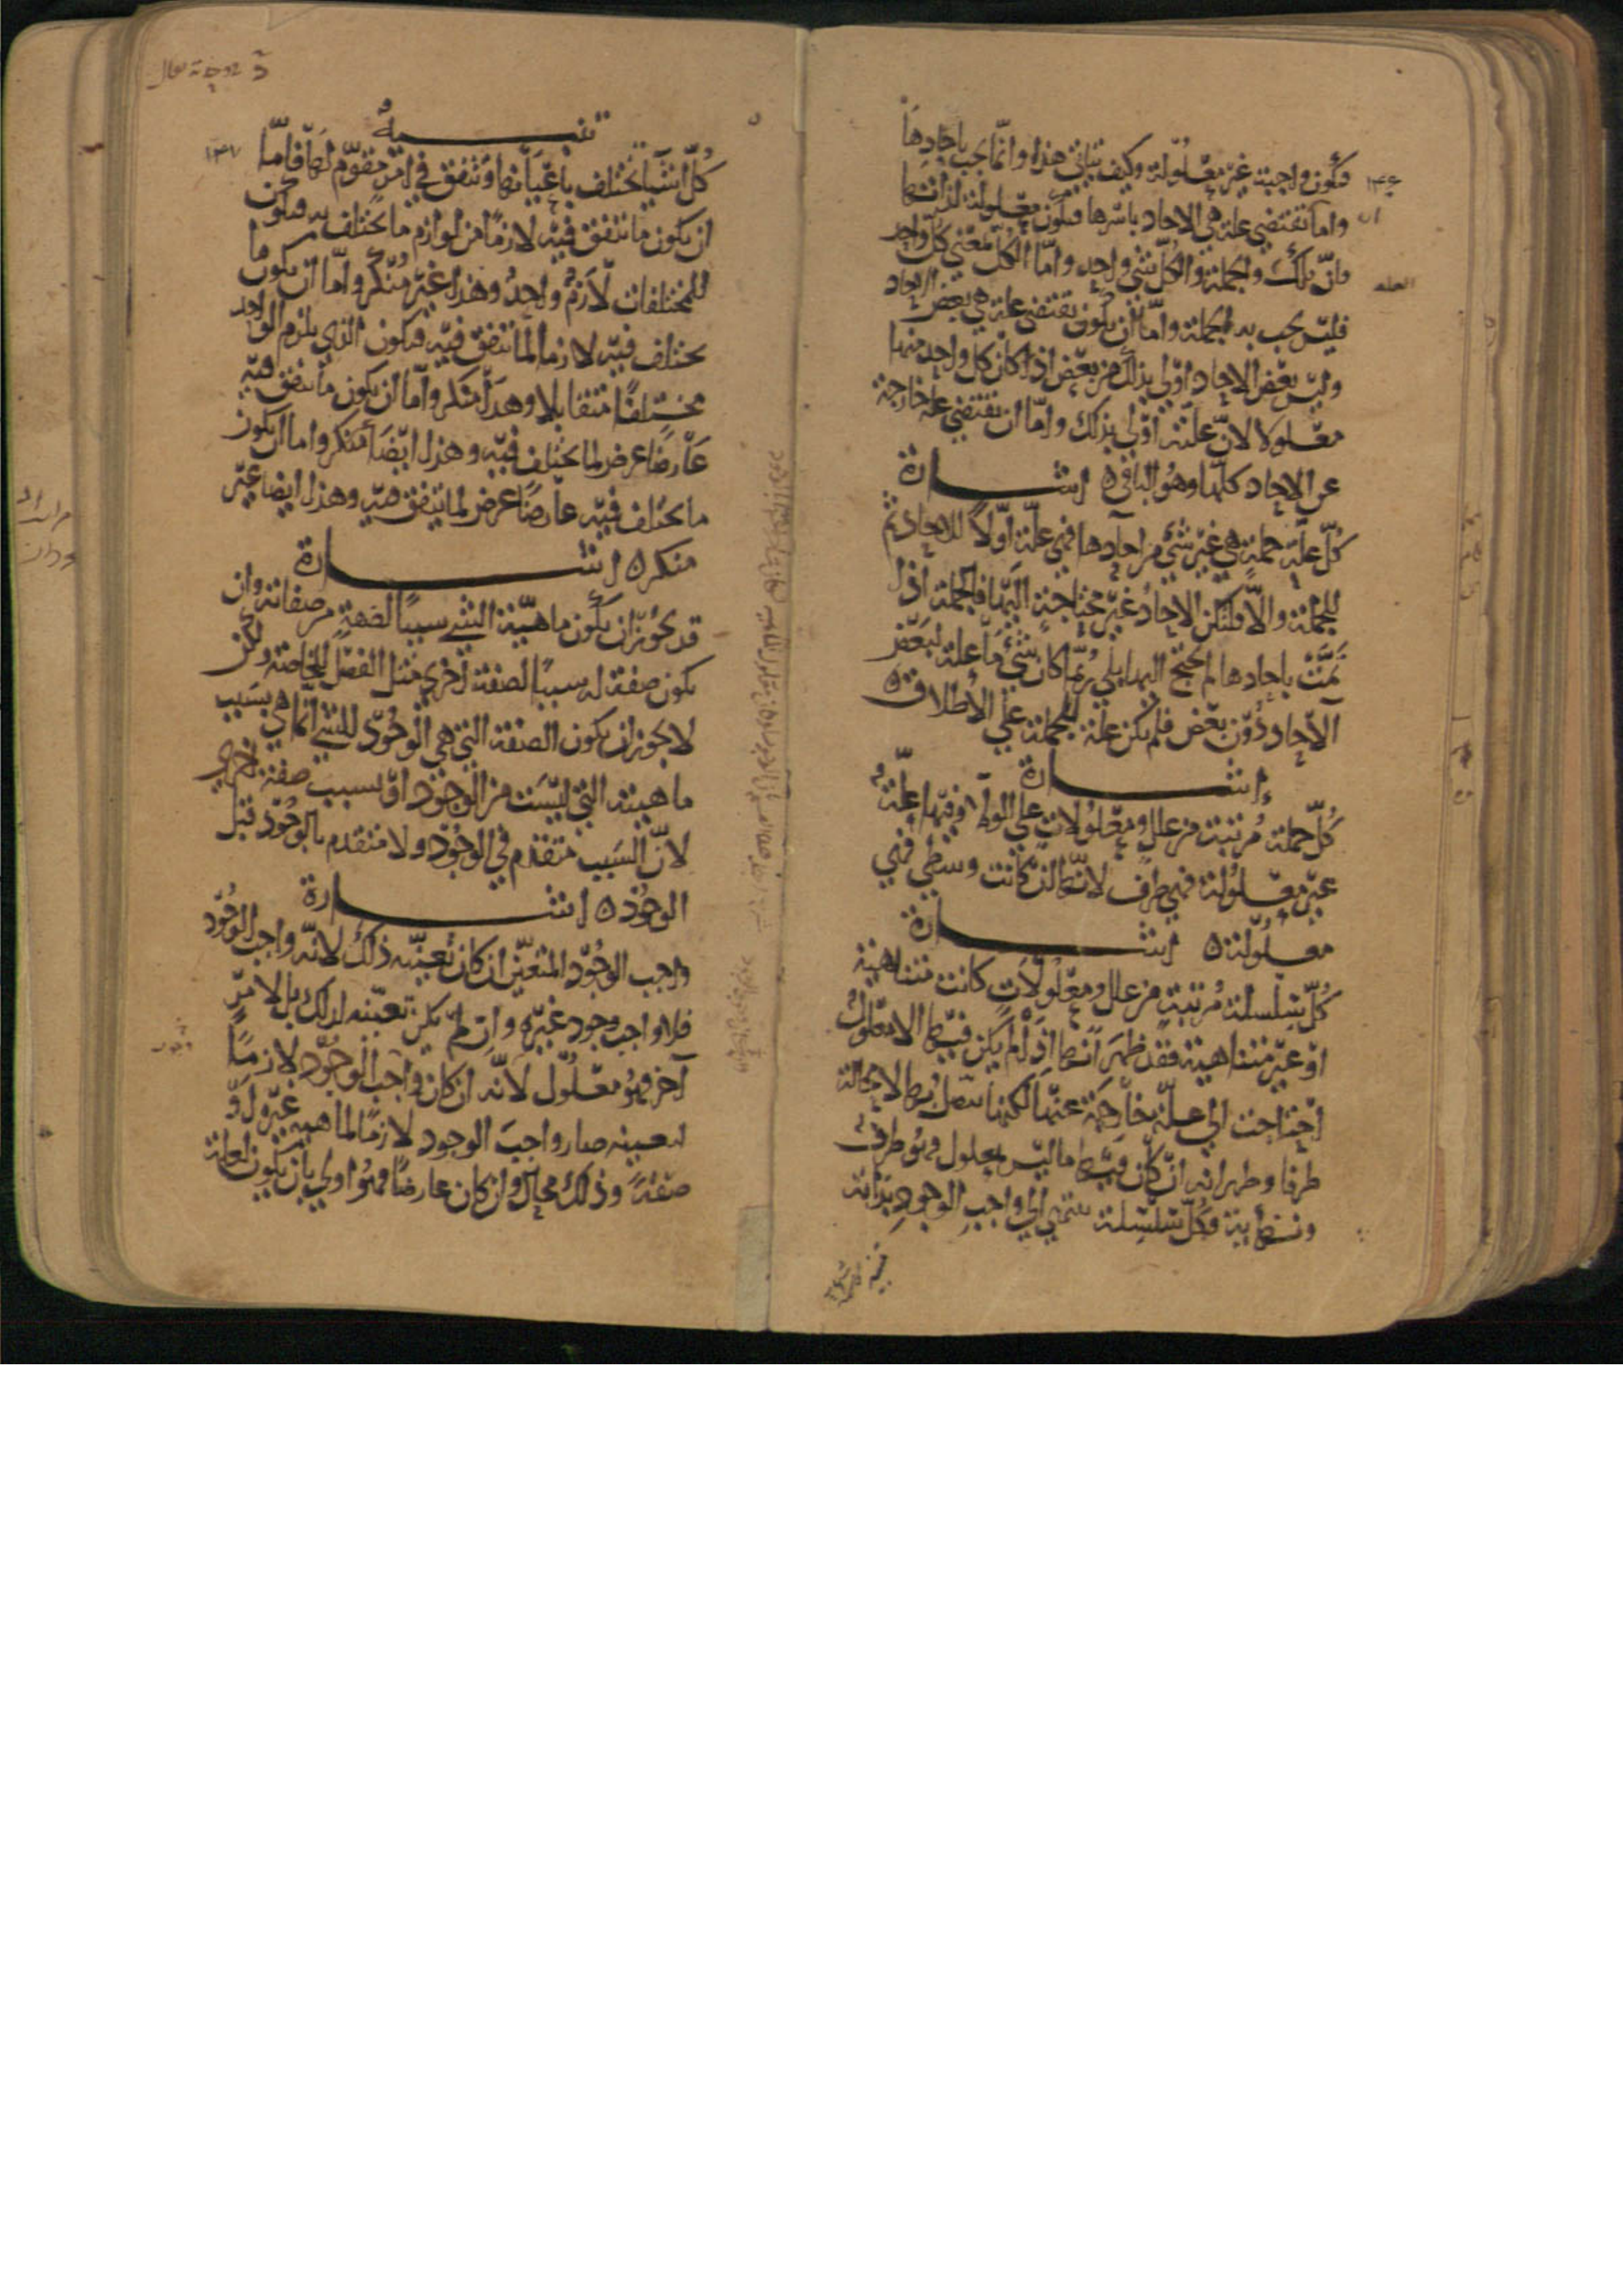 فتكون واجبة غير معلولة وكيف يتأتى هذا وانما يجب باحادها
واما تقتضي علة هي الاحاد باسرها فتكون معلولة لذاتها
فان تلك والجملة والكل شيء واحد واما الكل بمعنى كل واحد
فليس يجب به الجملة واما ان تكون تقتضي علة هي بعض الاحاد
وليس بعض الاحاد اولى بذلك من بعض اذا كان كل واحد منها
معلولا لان علته اولى بذلك واما ان تقتضي علة خارجة
عن الاحاد كلها وهو الباقي ه اشارة
كل علة جملة هي غير شيء من احادها فهي علة اولا للاحاد ثم
للجملة والا فلتكن الاحاد غير محتاجة اليها فالجملة اذا
تمت باحادها لم تحتج اليها بلى ربما كان شيء ما علة لبعض
الاحاد دون بعض فلم يكن علة للجملة على الاطلاق ه
اشارة
كل جملة مرتبة من علل ومعلولات على الولاء وفيها علة
غير معلولة فهي طرف لانها ان كانت وسطى فهي
معلولة ه اشارة
كل سلسلة مرتبة من علل ومعلولات كانت متناهية
او غير متناهية فقد ظهر انها اذا لم يكن فيها الا معلول
احتاجت الى علة خارجة عنها لكنها تتصل بها لا محالة
طرفا وظهر انه ان كان فيها ما ليس بمعلول فهو طرف
ونهاية فكل سلسلة تنتهي الى واجب الوجود بذاته
١٤۶
ان
العلة
تنبيه
كل اشياء تختلف باعيانها وتتفق في امر مقوم لها فاما
ان يكون ما تتفق فيه لازما من لوازم ما تختلف به فيكون
للمختلفات لازم واحد وهذا غير منكر واما ان يكون ما
تختلف فيه لازما لما تتفق فيه فيكون الذي يلزم الواحد
مختلفا متقابلا وهذا منكر واما ان يكون ما تتفق فيه
عارضا عرض لما تختلف فيه وهذا ايضا منكر واما ان يكون
ما تختلف فيه عارضا عرض لما تتفق فيه وهذا ايضا غير
منكر ه اشارة
قد يجوز ان يكون ماهية الشيء سببا لصفة من صفاته وان
يكون صفة له سببا لصفة اخرى مثل الفصل للخاصة ولكن
لا يجوز ان يكون الصفة التي هي الوجود للشيء انما هي بسبب
ماهيته التي ليست من الوجود او بسبب صفة اخرى
لان السبب متقدم في الوجود ولا متقدم بالوجود قبل
الوجود ه اشارة
واجب الوجود المتعين ان كان تعينه ذلك لانه واجب الوجود
فلا واجب وجود غيره وان لم يكن تعينه لذلك بل لامر
آخر فهو معلول لانه ان كان واجب الوجود لازما
لتعينه صار واجب الوجود لازما لماهية غيره او
صفة وذلك محال وان كان عارضا فهو اولى بان يكون لعلة
١٤٧